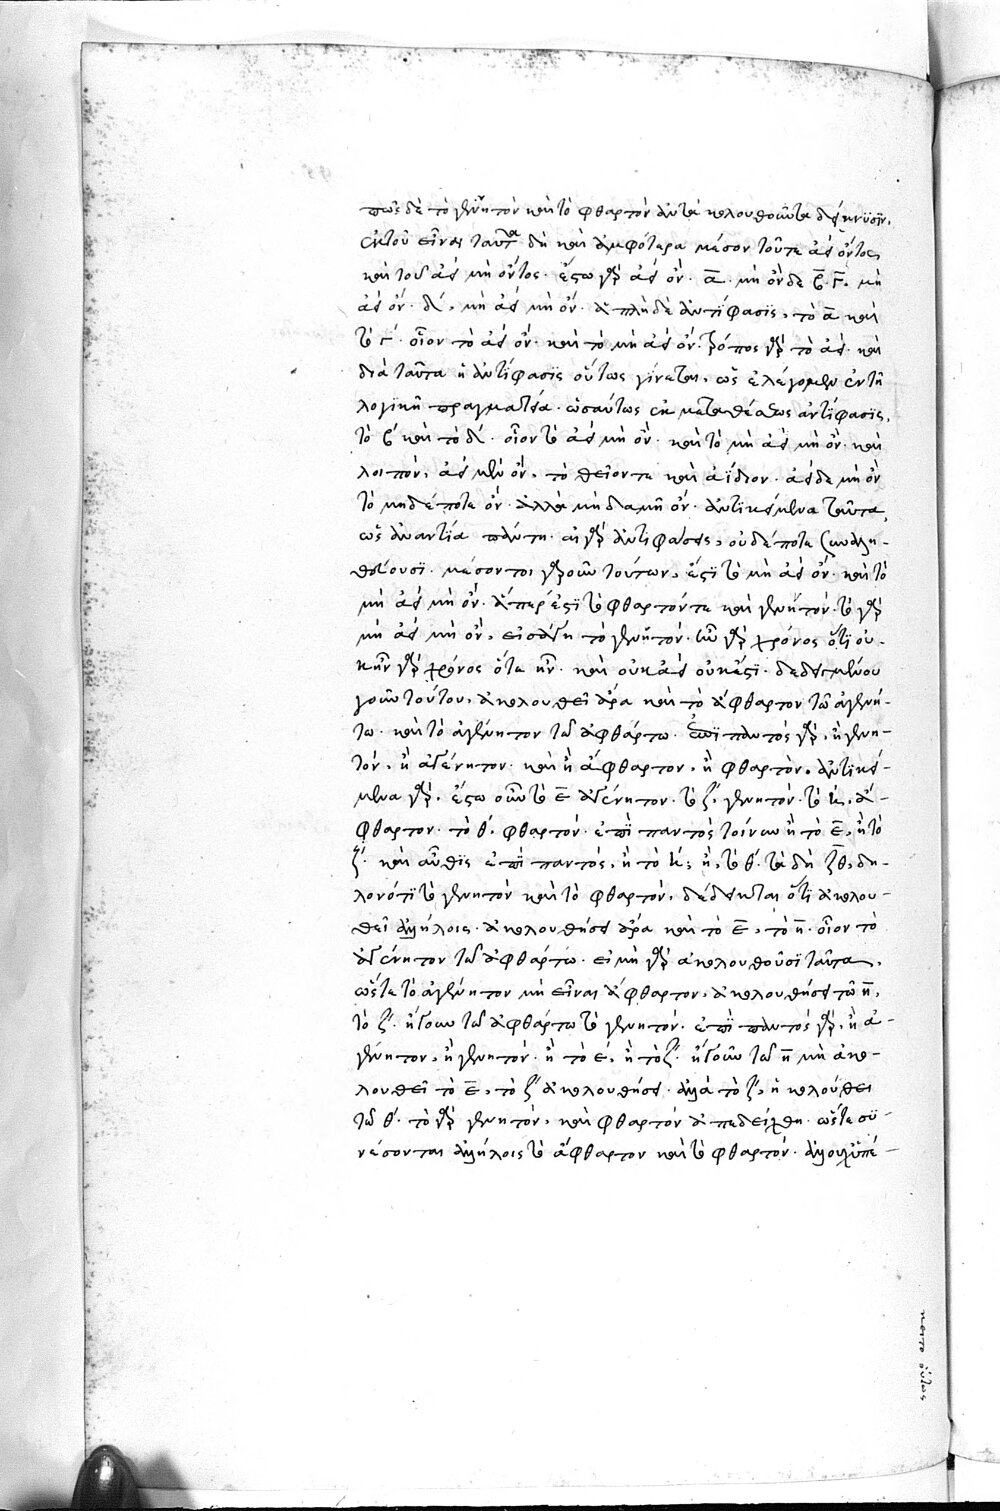 πῶς δὲ τὸ γενητὸν καὶ τὸ φθαρτὸν ἀντακολουθοῦντα δείκνυσιν,
ἐκ τοῦ εἶναι ταῦτα δὴ καὶ ἀμφότερα μέσον τοῦτε ἀεὶ ὄντος,
καὶ τοῦ ἀεὶ μὴ ὄντος· ἔστω γὰρ ἀεὶ ὂν· α· μὴ ὂν δὲ β· γ, μὴ
ἀεὶ ὄν· δ, μὴ ἀεὶ μὴ ὄν· ἁπλῆ δὲ ἀντίφασις, τὸ α καὶ
τὸ γ· οἷον τὸ ἀεὶ ὄν· καὶ τὸ μὴ ἀεὶ ὄν· τρόπος γὰρ τὸ ἀεὶ· καὶ
διὰ ταῦτα ἡ ἀντίφασις οὕτως γίνεται, ὡς ἐλέγομεν ἐν τῇ
λογικῇ πραγματεία· ὡσαύτως ἐκ μεταθέσεως ἀντίφασις,
τὸ β καὶ τὸ δ· οἷον τὸ ἀεὶ μὴ ὄν· καὶ τὸ μὴ ἀεὶ μὴ ὄν· καὶ
λοιπὸν, ἀεὶ μὲν ὄν, τὸ θεῖόν τε καὶ ἀΐδιον· ἀεὶ δὲ μὴ ὂν
τὸ μηδέποτε ὄν· ἀλλὰ μὴν μὴ ὄν· ἀντικείμενα ταῦτα,
ὡς ἐναντία πάντη· αἱ γὰρ ἀντιφάσεις, οὐδέποτε συναλη-
θεύουσι· μέσον τοι γεοῦν τούτων, ἔστι τὸ μὴ ἀεὶ ὄν· καὶ τὸ
μὴ ἀεὶ μὴ ὄν· ἅπερ ἐστὶ τὸ φθαρτόν τε καὶ γενητόν· τὸ γὰρ
μὴ ἀεὶ μὴ ὄν, εἰσάγη τὸ γενητόν· ἦν γὰρ χρόνος ὅτι οὐ-
κ ἦν γὰρ χρόνος ὅτε ἦν· καὶ οὐκ ἀεὶ οὐκ ἔστι· δεδειγμένου
γοῦν τούτου, ἀκολουθεῖ ἄρα καὶ τὸ ἄφθαρτον τῶ ἀγενή-
τω· καὶ τὸ ἀγένητον τῶ ἀφθάρτω· ἐπὶ παντὸς γὰρ, ἢ γενη-
τόν, ἢ ἀγένητον· καὶ ἢ ἄφθαρτον, ἢ φθαρτόν, ἀντικεί-
μενα γὰρ, ἔστω οὖν τὸ ε ἀγένητον· τὸ ζ, γενητόν· τὸ η, ἄ-
φθαρτον· τὸ θ, φθαρτόν· ἐπὶ παντὸς τοίνυν ἢ τὸ ε, ἢ τὸ
ζ· καὶ αὖθις ἐπὶ παντὸς, ἢ τὸ η, ἢ, τὸ θ· τὰ δὴ ζθ, δη-
λονότι τὸ γενητὸν καὶ τὸ φθαρτόν, δέδεικται ὅτι ἀκολου-
θεῖ ἀλλήλοις· ἀκολουθήσει ἄρα καὶ τὸ ε, τὸ η· οἷον τὸ
ἀγένητον τῶ ἀφθάρτω· εἰ μὴ γὰρ ἀκολουθοῦσι ταῦτα,
ὥστε τὸ ἀγένητον μὴ εἶναι ἄφθαρτον, ἀκολουθήσει τῶ η,
τὸ ζ· ἤγουν τῶ ἀφθάρτω τὸ γενητόν· ἐπὶ παντὸς γὰρ, ἢ ἀ-
γένητον, ἢ γενητόν· ἢ τὸ ε, ἢ τὸ ζ· ἤγουν τῶ η μὴ ἀκο-
λουθεῖ τὸ ε, τὸ ζ ἀκολουθήσει· ἀλλὰ τὸ ζ, ἠκολούθει
τῶ θ· τὸ γὰρ γενητὸν, καὶ φθαρτὸν ἀπεδείχθη· ὥστε συ-
νέσονται ἀλλήλοις τὸ ἄφθαρτον καὶ τὸ φθαρτόν· ἀλλ' οὐχ ὑπέ-